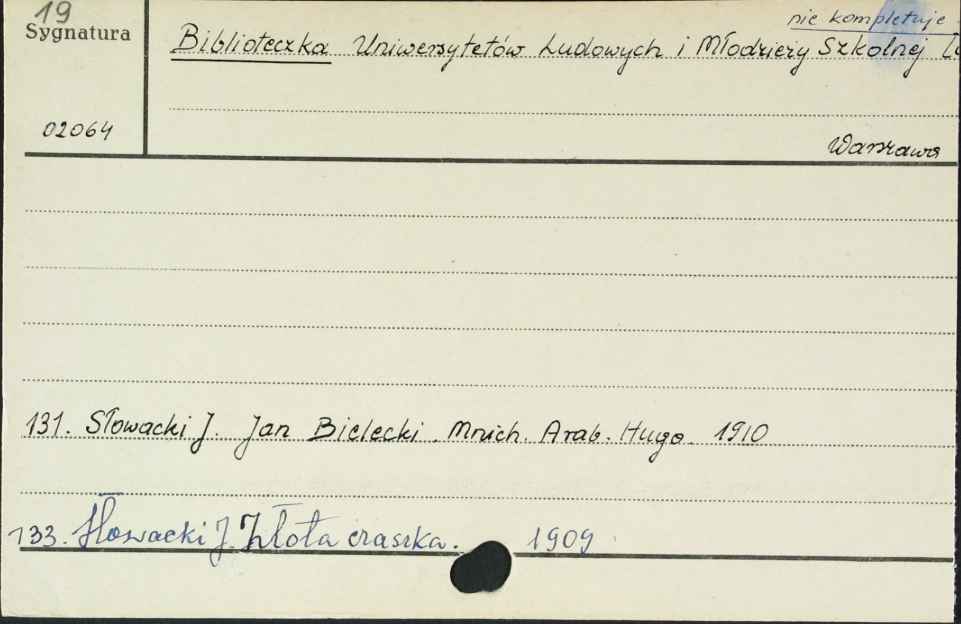 19
nie kompletuje
Sygnatura
Biblioteczka Uniwersytetów Ludowych i Młodzieży Szkolnej
02064
Warszawa
131. Słowacki J. Jan Bielecki. Mnich. Arab. Hugo. 1910
133. Słowacki J. Złota czaszka. 1909